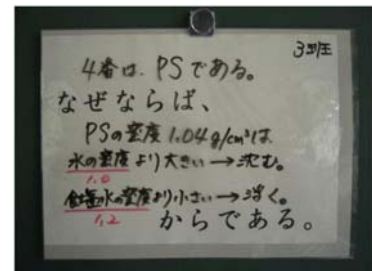 3班
4番は、PSである。
なぜならば、
PSの密度1.04g/cm³は
水の密度より大きい→沈む。
1.0
食塩水の密度より小さい→浮く。
1.2
からである。